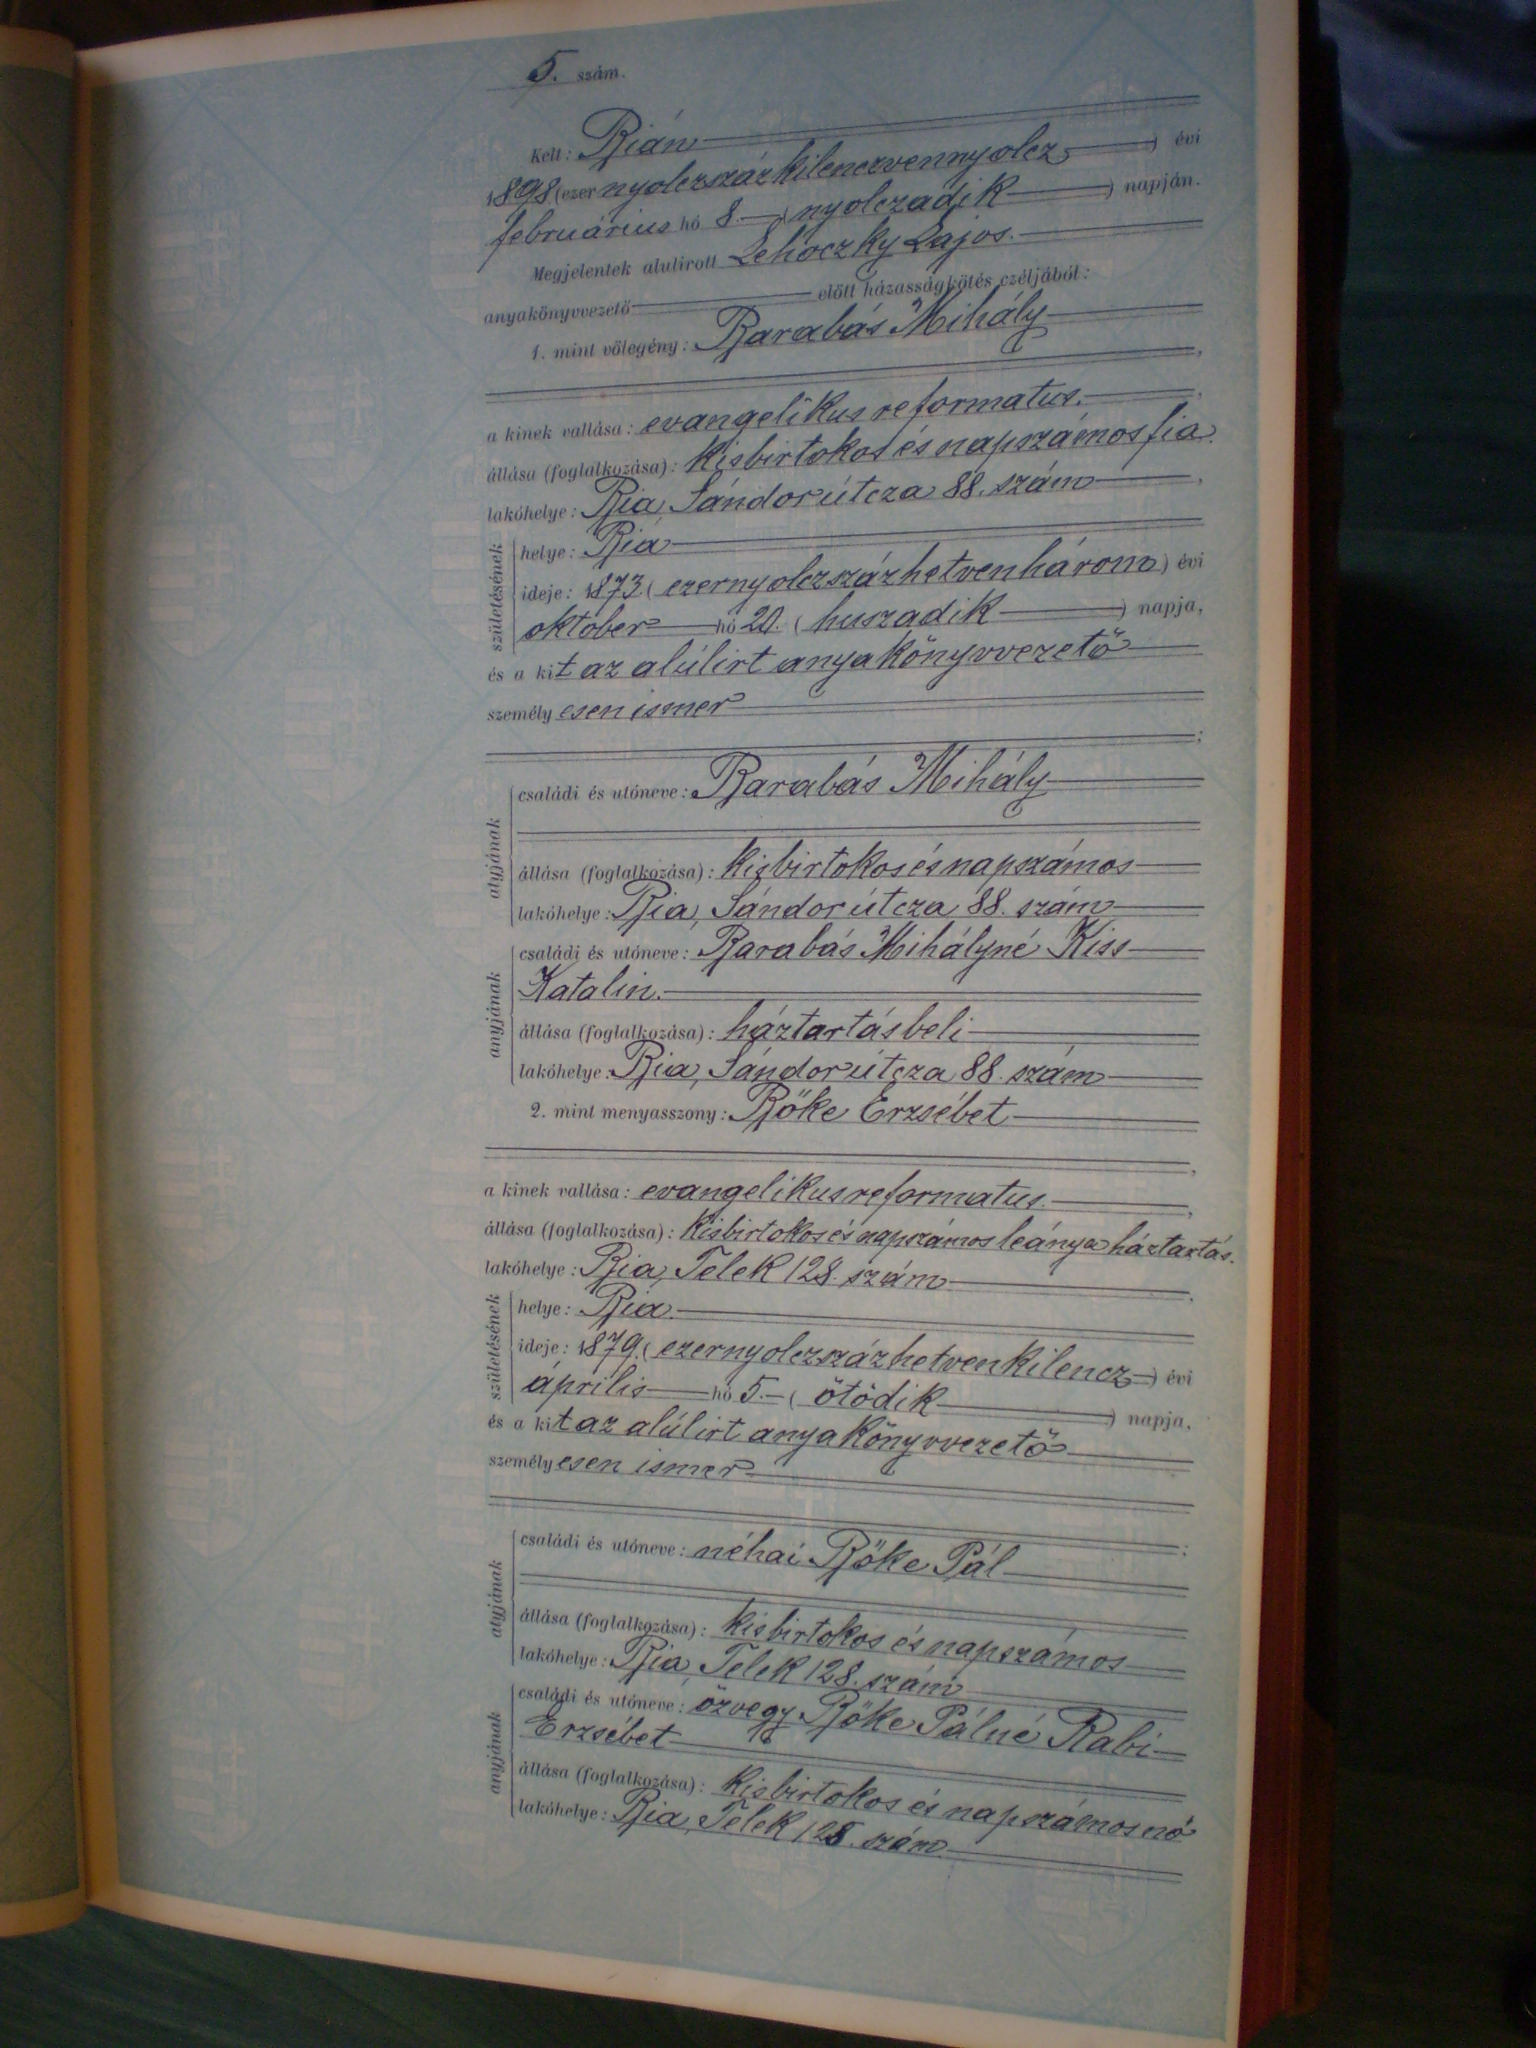 5. szám.
Kelt: Bián
1898 (ezernyolczszázkilenczvennyolcz) évi
februárius hó 8. (nyolczadik) napján.
Megjelentek alulirott Lehoczky Lajos.
anyakönyvvezető előtt házasságkötés czéljából:
1. mint vőlegény: Barabás Mihály
a kinek vallása: evangelikus reformatus.
állása (foglalkozása): kisbirtokos és napszámos fia.
lakóhelye: Bia, Sándor útcza 88. szám
születésének
helye: Bia
ideje: 1873. (ezernyolczszázhetvenhárom) évi
oktober hó 20. (huszadik) napja,
és a kit az alúlirt anyakönyvvezető
személyesen ismer
;
atyjának
családi és utóneve: Barabás Mihály
állása (foglalkozása): kisbirtokos és napszámos
lakóhelye: Bia, Sándor útcza 88. szám
anyjának
családi és utóneve: Barabás Mihályné Kiss
Katalin.
állása (foglalkozása): háztartásbeli
lakóhelye: Bia, Sándor útcza 88. szám
2. mint menyasszony: Bőke Erzsébet
a kinek vallása: evangelikus reformatus.
állása (foglalkozása): kisbirtokos és napszámos leánya háztartás.
lakóhelye: Bia, Telek 128. szám
születésének
helye: Bia.
ideje: 1879. (ezernyolczszázhetvenkilencz) évi
április hó 5. (ötödik) napja,
és a kit az alúlirt anyakönyvvezető
személyesen ismer
;
atyjának
családi és utóneve: néhai Bőke Pál
állása (foglalkozása): kisbirtokos és napszámos
lakóhelye: Bia, Telek 128. szám
anyjának
családi és utóneve: özvegy Bőke Pálné Rabi
Erzsébet
állása (foglalkozása): kisbirtokos és napszámosnő
lakóhelye: Bia, Telek 128. szám.